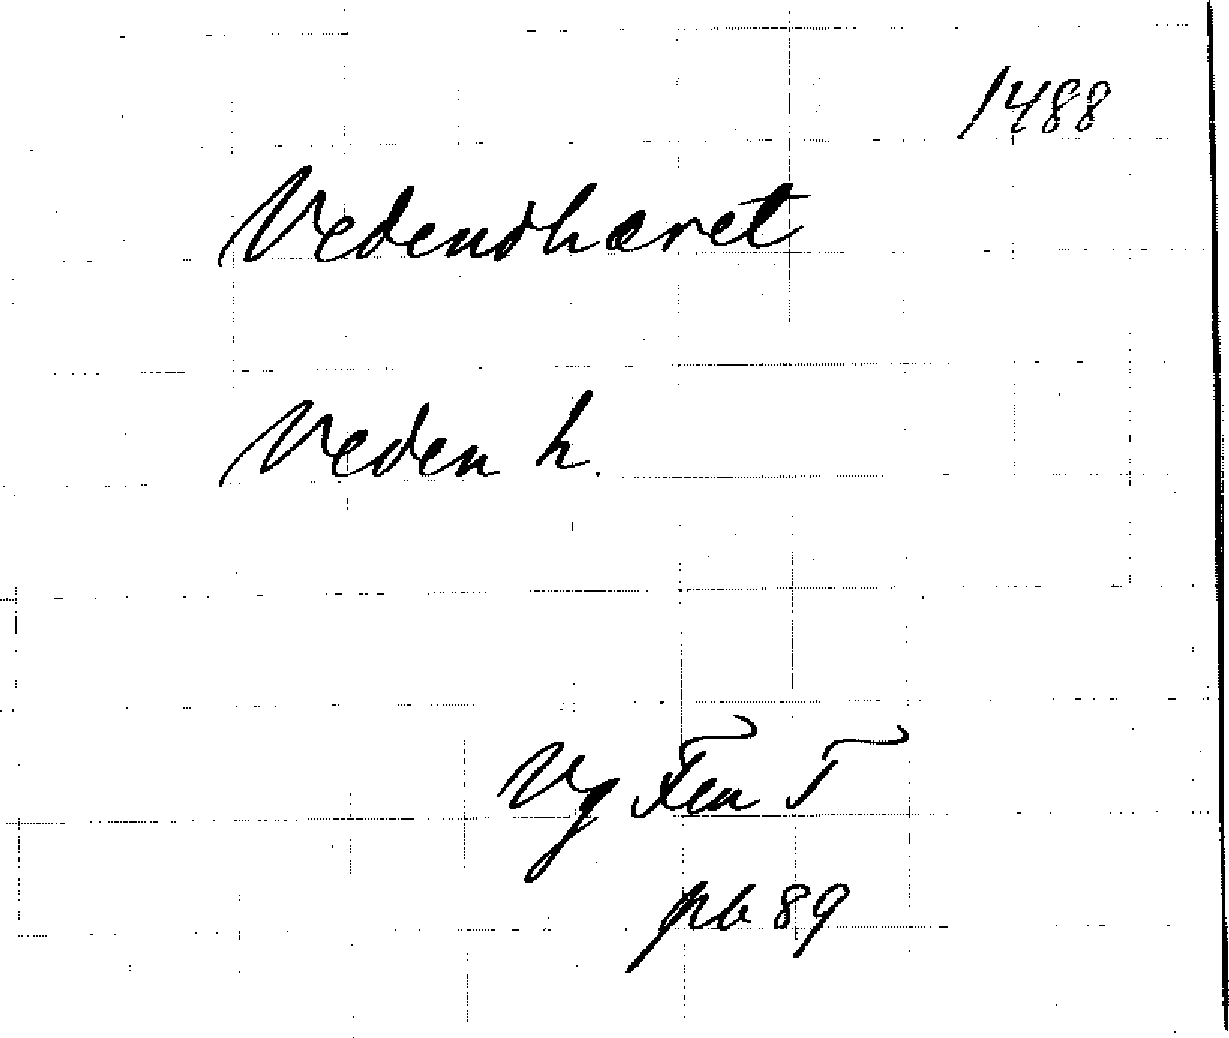 1488
Vedenshæret
Veden h.
Vg Ten T
pb 89